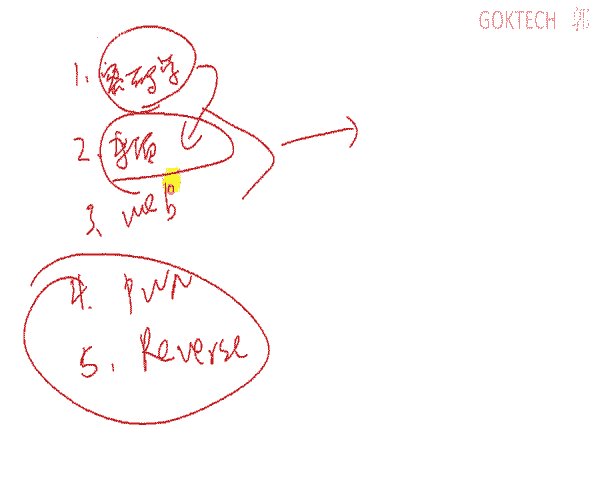 GOKTECH 郭
1. 密码学
2. 杂项
3. web
4. PWN
5. Reverse